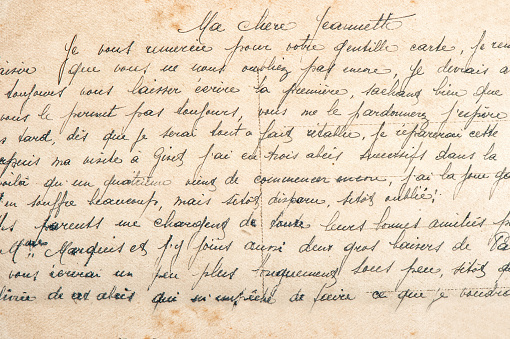 Ma chère Jeannette
Je vous remercie pour votre gentille carte, je
que vous ne nous oubliez pas encore. Je devrais
toujours vous laisser écrire la première, sachant bien que
vous le permet pas toujours, vous me le pardonnez j'espère
tard, dès que je serai tout à fait rétablie, je réparerai cette
ma visite à j'ai eu trois abcès successifs dans la
voilà qu'un quatrième vient de commencer encore, j'ai la joue
souffre beaucoup, mais sitôt disparu, sitôt oublié!
parents me chargent de toute leurs bonnes amitiés
Marquis et j'y joins aussi deux gros baisers de
vous écrirai un peu plus longuement sous peu, sitôt
de cet abcès qui m'empêche de faire ce que je